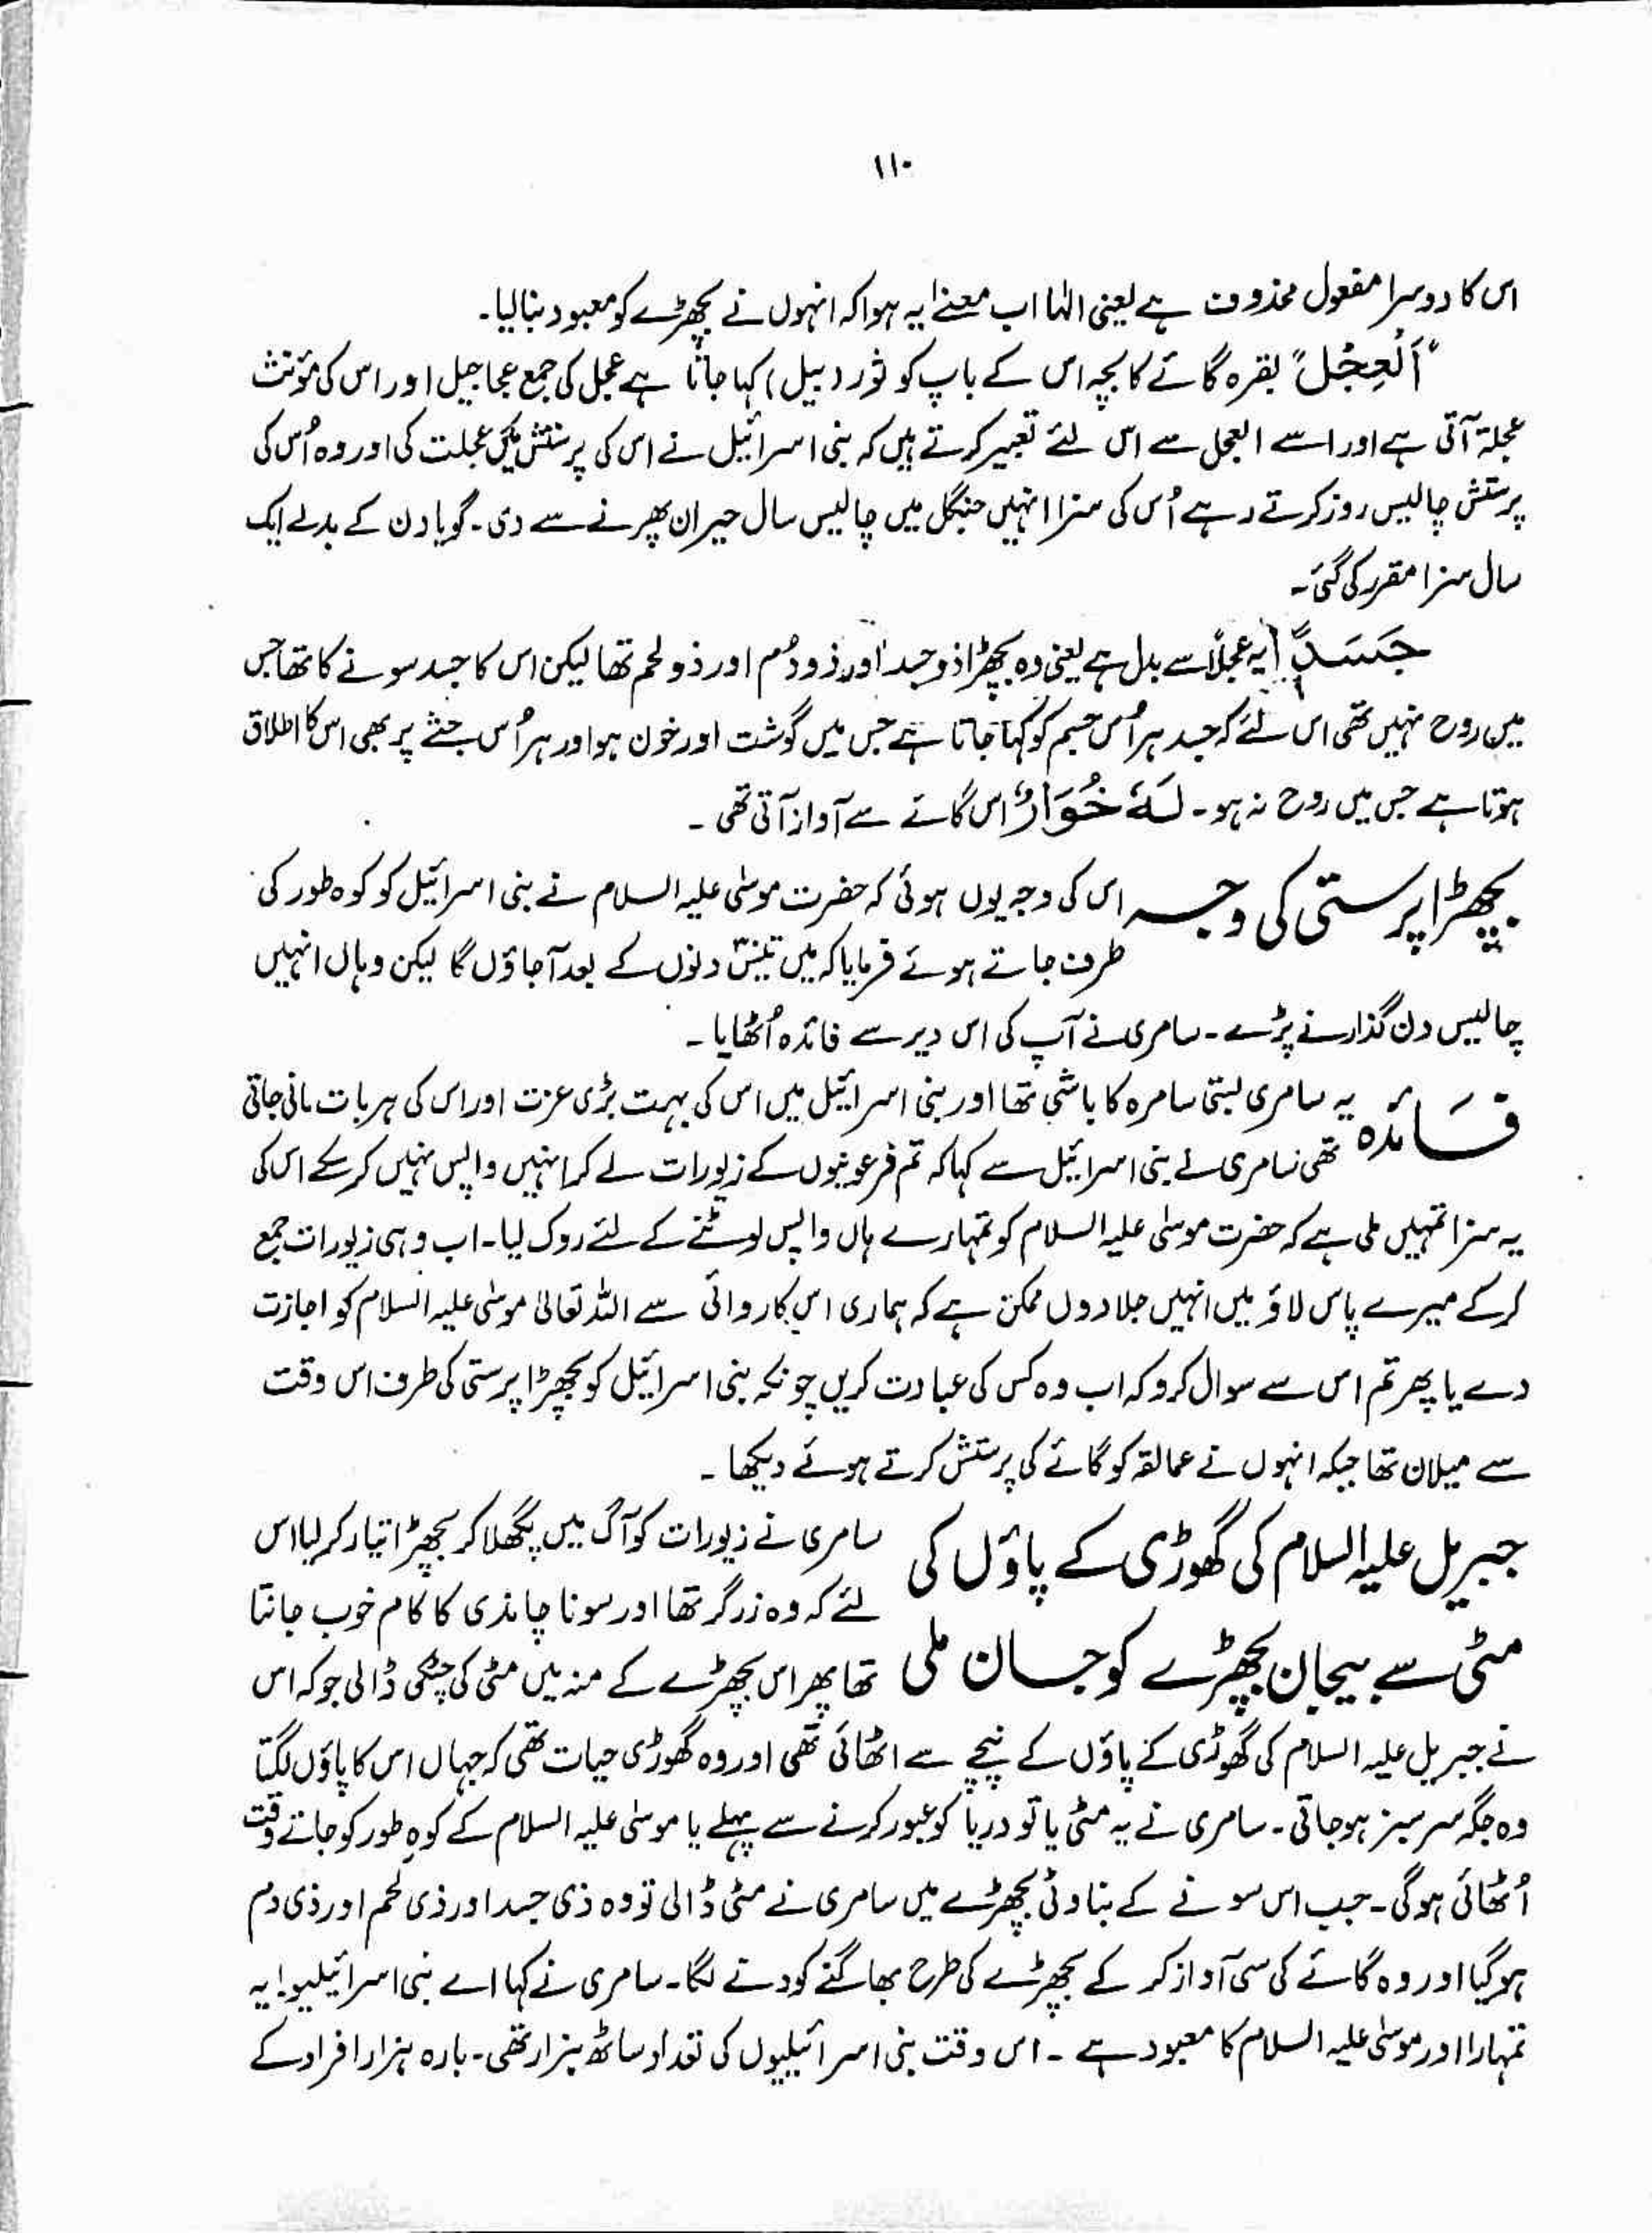 ۱۱۰
اس کا دوسرا مفعول محذوف ہے یعنی الٰہا اب معنےٰ یہ ہوا کہ انہوں نے بچھڑے کو معبود بنا لیا۔
”اَلْعِجْلَ“ بقرہ گائے کا بچہ اس کے باپ کو ثور (بیل) کہا جاتا ہے عجل کی جمع عجاجیل اور اس کی مؤنث
عجلۃ آتی ہے اور اسے العجل سے اس لئے تعبیر کرتے ہیں کہ بنی اسرائیل نے اس کی پرستش میں عجلت کی اور وہ اُس کی
پرستش چالیس روز کرتے رہے اُس کی سزا انہیں جنگل میں چالیس سال حیران پھرنے سے دی۔ گویا دن کے بدلے ایک
سال سزا مقرر کی گئی۔
جَسَدًا یہ عجلاً سے بدل ہے یعنی وہ بچھڑا ذو جسد اور ذو دُم اور ذو لحم تھا لیکن اس کا جسد سونے کا تھا جس
میں روح نہیں تھی اس لئے کہ جسد ہر اُس جسم کو کہا جاتا ہے جس میں گوشت اور خون ہو اور ہر اُس جثے پر بھی اس کا اطلاق
ہوتا ہے جس میں روح نہ ہو۔ لَهٗ خُوَارٌ اس گائے سے آواز آتی تھی۔
بچھڑا پرستی کی وجہ اس کی وجہ یوں ہوئی کہ حضرت موسٰی علیہ السلام نے بنی اسرائیل کو کوہ طور کی
طرف جاتے ہوئے فرمایا کہ میں تیس۳۰ دنوں کے بعد آجاؤں گا لیکن وہاں انہیں
چالیس دن گذارنے پڑے۔ سامری نے آپ کی اس دیر سے فائدہ اُٹھایا۔
فَائدہ یہ سامری بستی سامرہ کا باشی تھا اور بنی اسرائیل میں اس کی بہت بڑی عزت اور اس کی ہر بات مانی جاتی
تھی سامری نے بنی اسرائیل سے کہا کہ تم فرعونیوں کے زیورات لے کر انہیں واپس نہیں کر سکے اس کی
یہ سزا تمہیں ملی ہے کہ حضرت موسٰی علیہ السلام کو تمہارے ہاں واپس لوٹنے کے لئے روک لیا۔ اب وہی زیورات جمع
کر کے میرے پاس لاؤ میں انہیں جلا دوں ممکن ہے کہ ہماری اس کاروائی سے اللہ تعالیٰ موسٰی علیہ السلام کو اجازت
دے یا پھر تم اس سے سوال کرو کہ اب وہ کس کی عبادت کریں چونکہ بنی اسرائیل کو بچھڑا پرستی کی طرف اس وقت
سے میلان تھا جبکہ انہوں نے عمالقہ کو گائے کی پرستش کرتے ہوئے دیکھا۔
جبریل علیہ السلام کی گھوڑی کے پاؤں کی سامری نے زیورات کو آگ میں پگھلا کر بچھڑا تیار کر لیا اس
لئے کہ وہ زرگر تھا اور سونا چاندی کا کام خوب جانتا
مٹی سے بیجان بچھڑے کو جان ملی تھا پھر اس بچھڑے کے منہ میں مٹی کی چٹکی ڈالی جو کہ اس
نے جبریل علیہ السلام کی گھوڑی کے پاؤں کے نیچے سے اٹھائی تھی اور وہ گھوڑی حیات تھی کہ جہاں اس کا پاؤں لگتا
وہ جگہ سرسبز ہو جاتی۔ سامری نے یہ مٹی یا تو دریا کو عبور کرنے سے پہلے یا موسٰی علیہ السلام کے کوہِ طور کو جاتے وقت
اُٹھائی ہوگی۔ جب اس سونے کے بناوٹی بچھڑے میں سامری نے مٹی ڈالی تو وہ ذی جسد اور ذی لحم اور ذی دم
ہو گیا اور وہ گائے کی سی آواز کر کے بچھڑے کی طرح بھاگنے کودنے لگا۔ سامری نے کہا اے بنی اسرائیلیو! یہ
تمہارا اور موسٰی علیہ السلام کا معبود ہے۔ اس وقت بنی اسرائیلیوں کی تعداد ساٹھ ہزار تھی۔ بارہ ہزار افراد کے